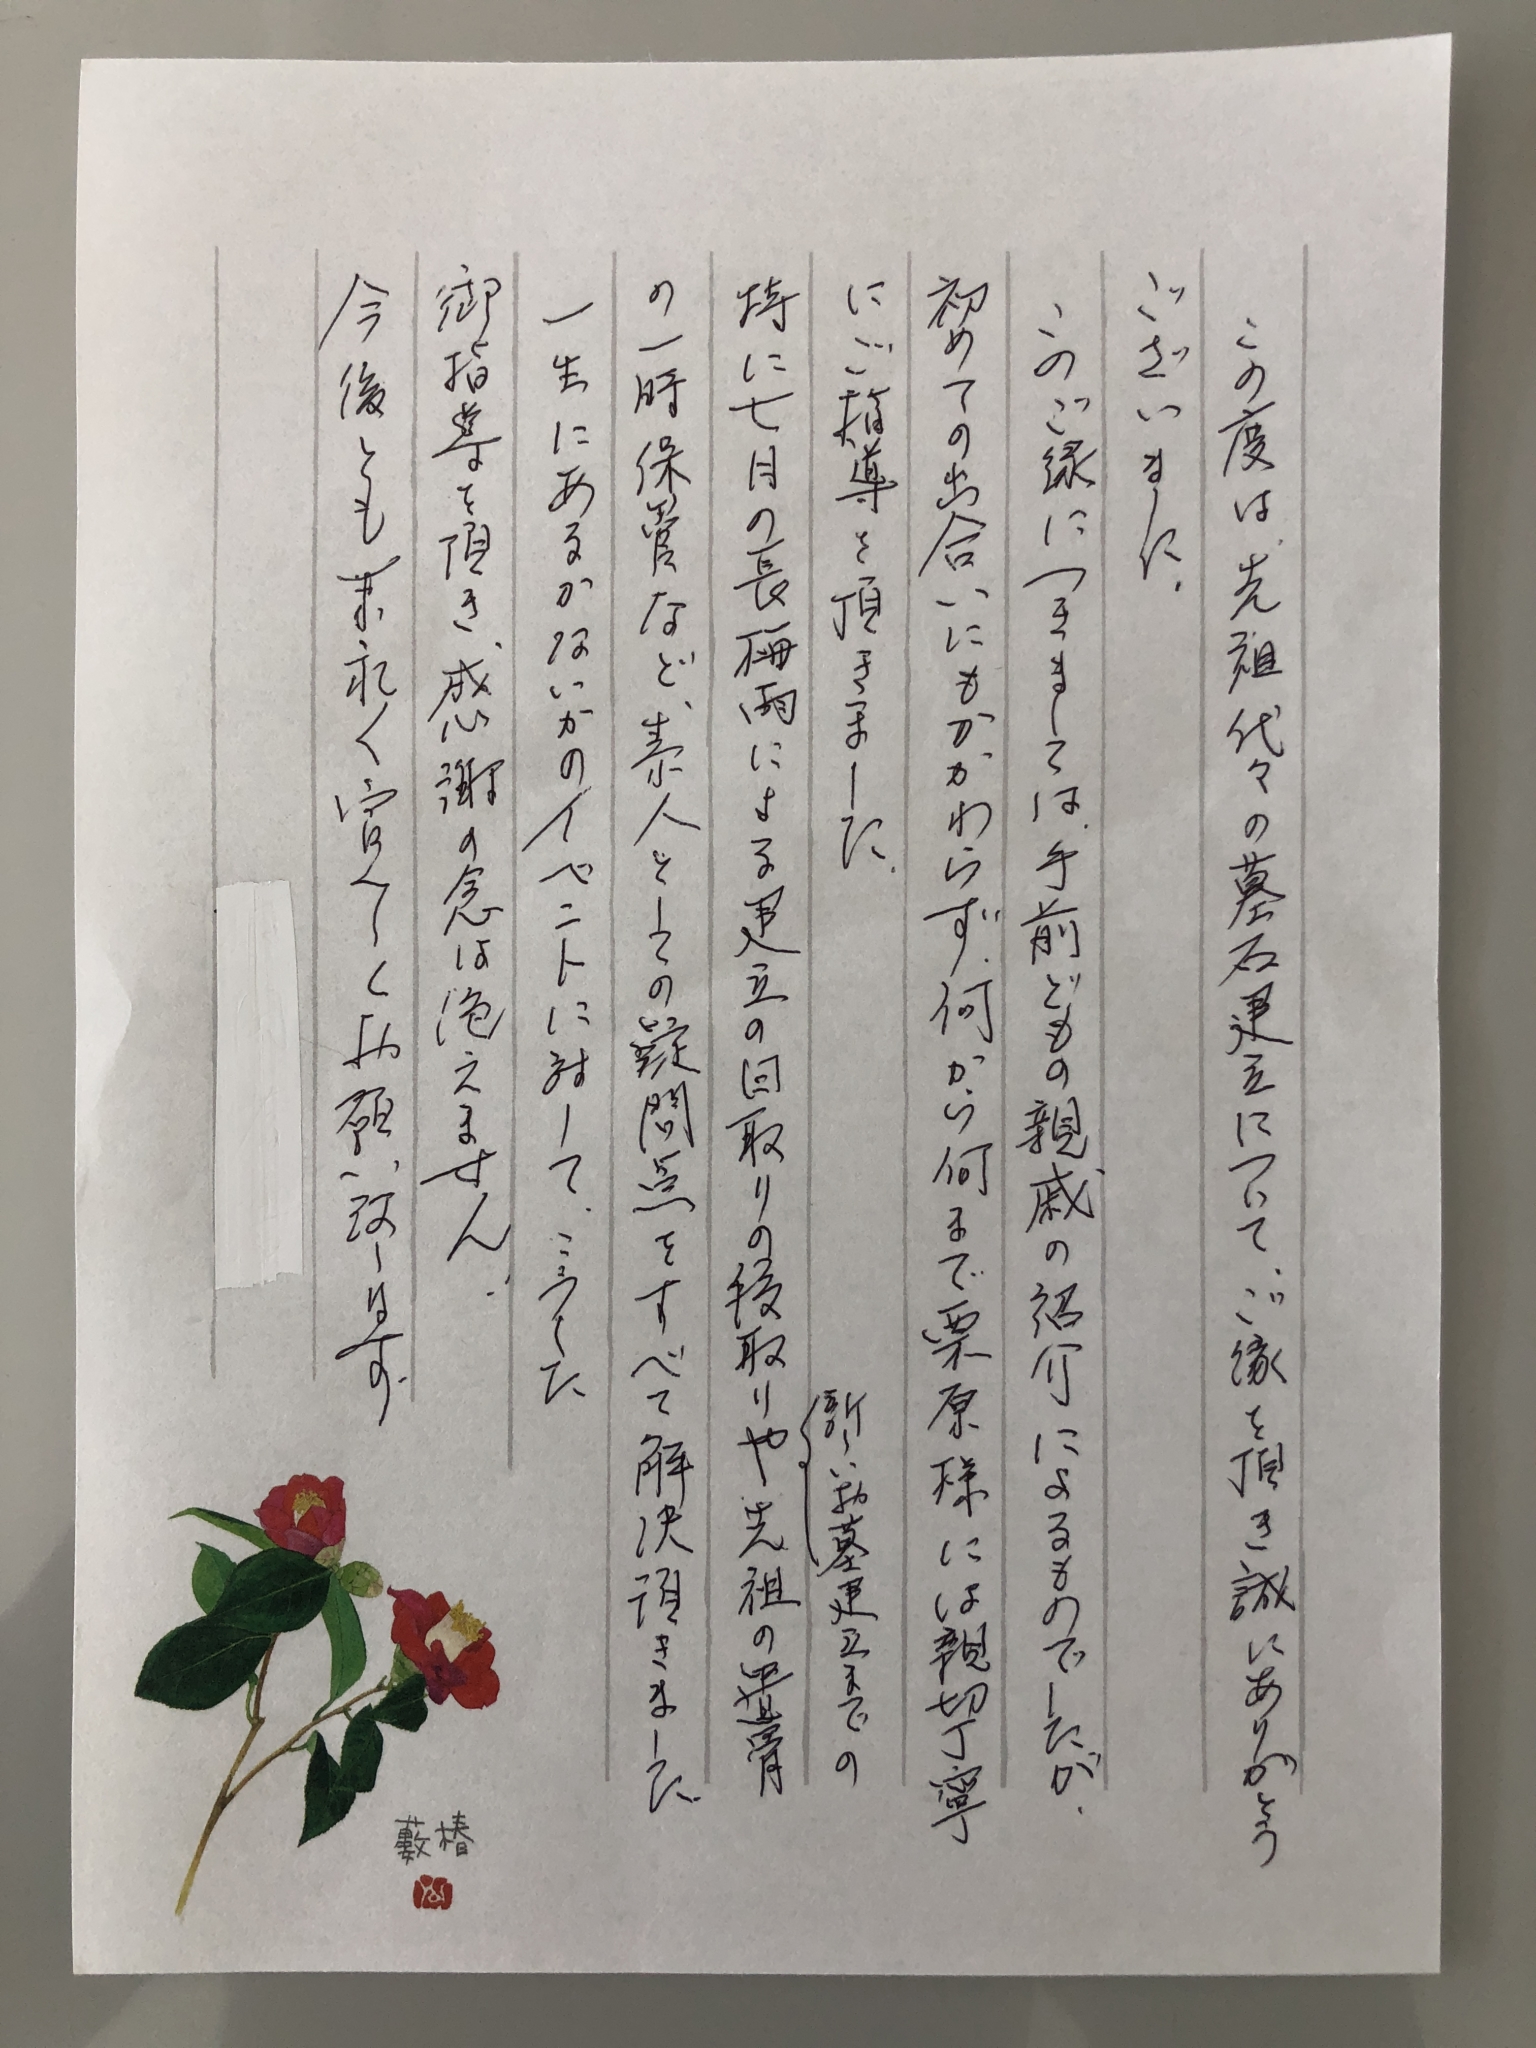 この度は、先祖代々の墓石建立について、ご縁を頂き誠にありがとう
ございました。
このご縁につきましては、手前どもの親戚の紹介によるものでしたが、
初めての出合いにもかかわらず、何から何まで栗原様には親切丁寧
にご指導を頂きました。
新しいお墓建立までの
特に七月の長梅雨による建立の日取りの段取りや先祖の遺骨
の一時保管など、素人としての疑問点をすべて解決頂きました。
一生にあるかないかのイベントに対して、こうした
御指導を頂き、感謝の念は絶えません。
今後とも末永く宜しくお願い致します。
藪椿